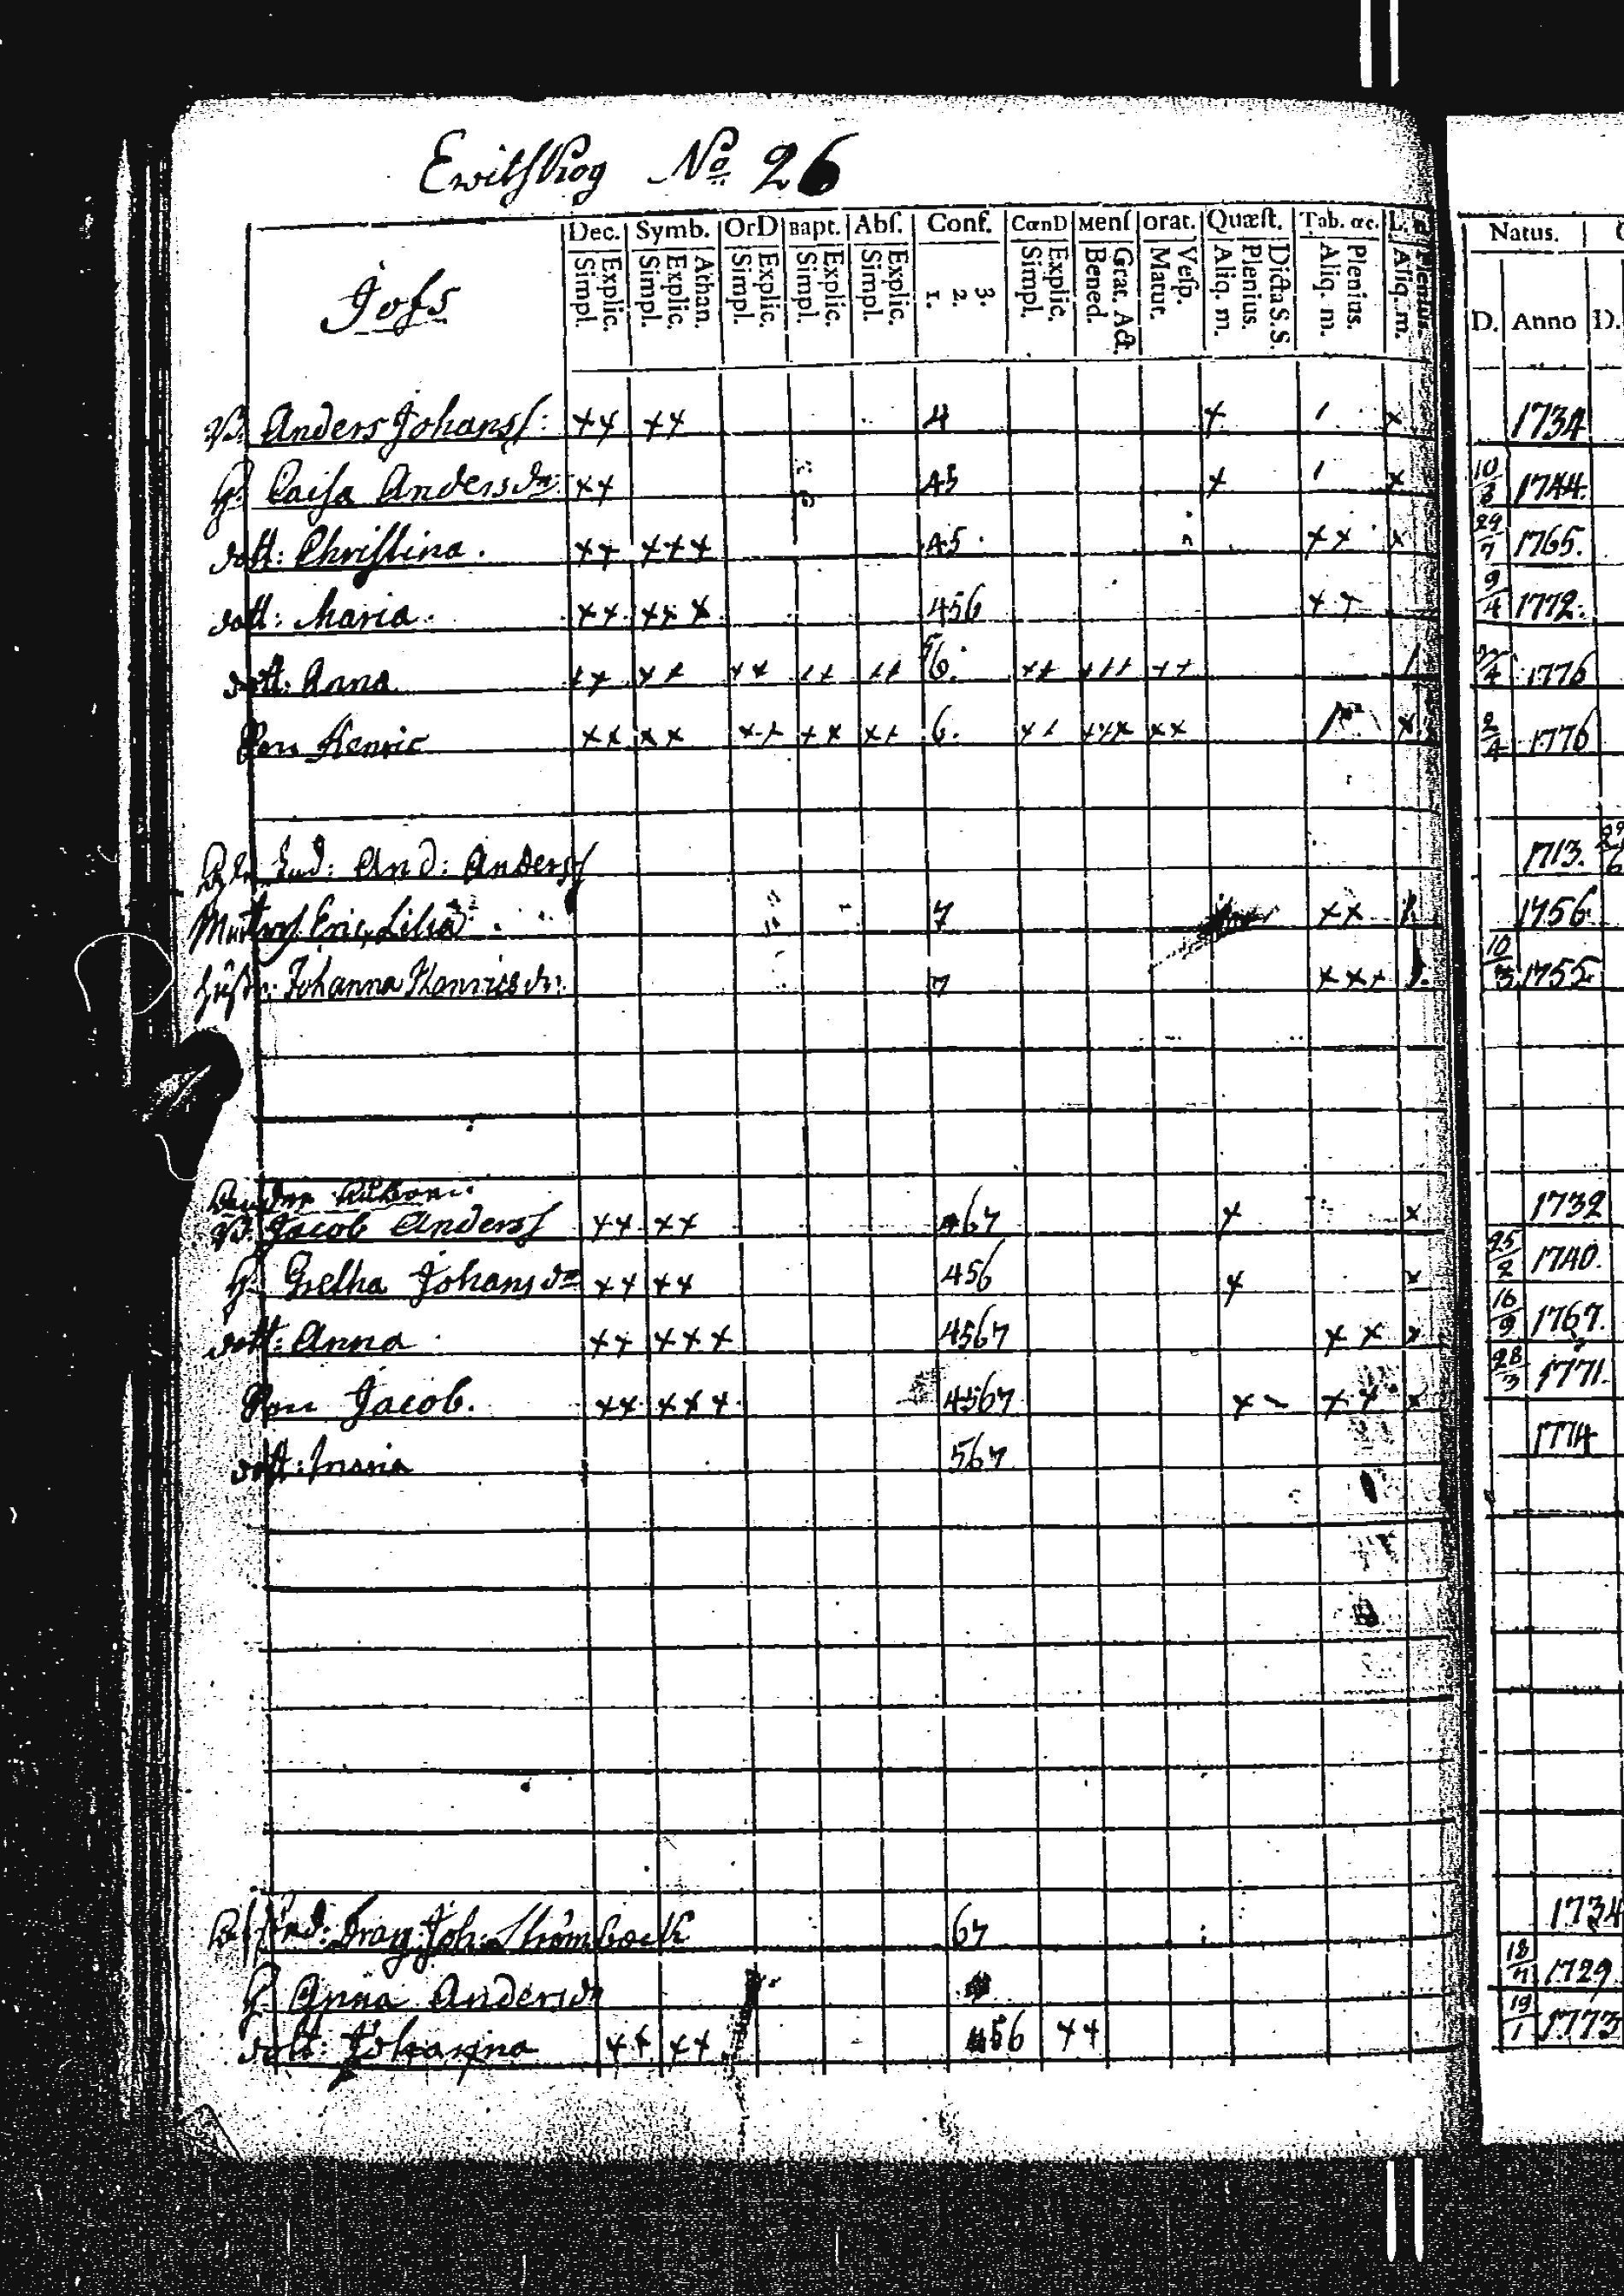 Ewitskog No 26
Jofs
Dec. Symb. OrD Bapt. Abſ. Conf. CœnD Menſ Orat. Quæſt. Tab. œc. L. Natus.
Explic. Simpl. Athan. Explic. Simpl. Explic. Simpl. Explic. Simpl. Explic. Simpl. 3. 2. 1. Explic. Simpl. Grat. Act. Bened. Veſp. Matut. Dicta S. S. Plenius. Aliq. m. Plenius. Aliq. m. Plenius. Aliq. m. D. Anno D.
Anders Johansſ: ++ ++ 4 + / x 1734
H. Caisa Andersdr ++ 45 + / x 10/3 1744.
dott: Christina. ++ +++ 45. ++ x 29/7 1765.
dott: Maria. ++ +++ 456 ++ 9/4 1772.
dott: Anna ++ ++ ++ ++ ++ 56. ++ +++ ++ / 1776
Son Henric ++ ++ ++ ++ ++ 6. ++ +++ ++ x 2/4 1776
And: Andersſ 1713.
Eric Lilja 7 ++ 1756
Johanna Henricsdr: 7 +++ 10/3 1755
Jacob Andersſ ++ ++ 467 + x 1732
H. Gretha Johansdr ++ ++ 456 + x 25/2 1740.
dott: Anna ++ +++ 4567 ++ x 16/9 1767.
Son Jacob. ++ +++ 4567 + - ++ x 28/3 1771.
dott: Maria 567 1774
Joh: Strömbäck 67 1734
H. Anna Andersdr 18/7 1729
dott: Johanna ++ ++ 456 ++ 19/1 1773